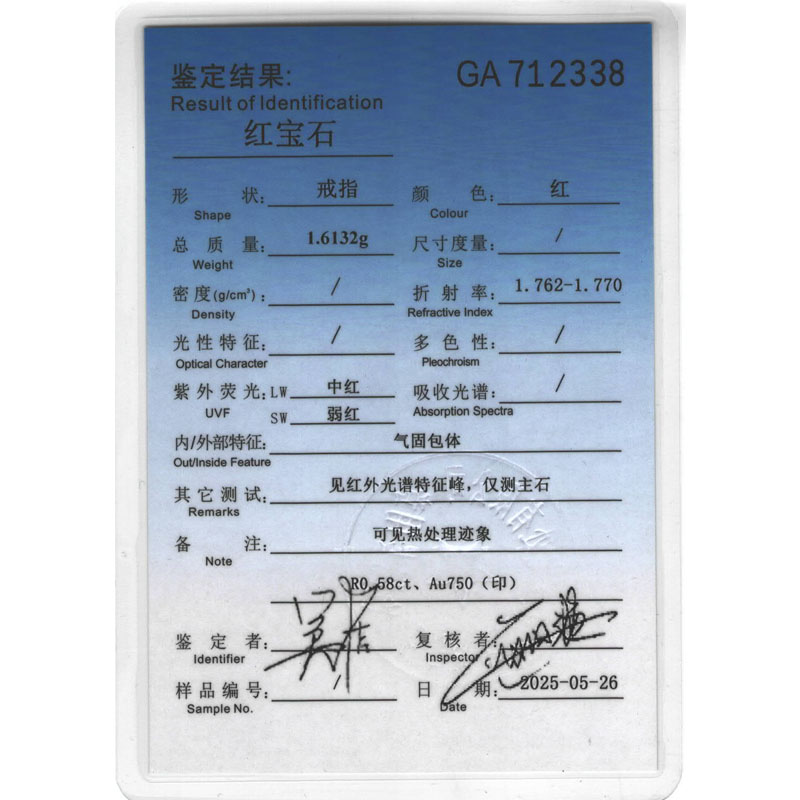 鉴定结果: GA 712338
Result of Identification
红宝石
形 状: 戒指 颜 色: 红
Shape Colour
总 质 量: 1.6132g 尺寸度量: /
Weight Size
密 度(g/cm³): / 折 射 率: 1.762-1.770
Density Refractive Index
光性特征: / 多 色 性: /
Optical Character Pleochroism
紫外荧光: LW 中红 吸收光谱: /
UVF SW 弱红 Absorption Spectra
内/外部特征: 气固包体
Out/Inside Feature
其它测试: 见红外光谱特征峰,仅测主石
Remarks
备 注: 可见热处理迹象
Note
R0.58ct、Au750(印)
鉴 定 者: 复 核 者:
Identifier Inspector
样品编号: / 日 期: 2025-05-26
Sample No. Date